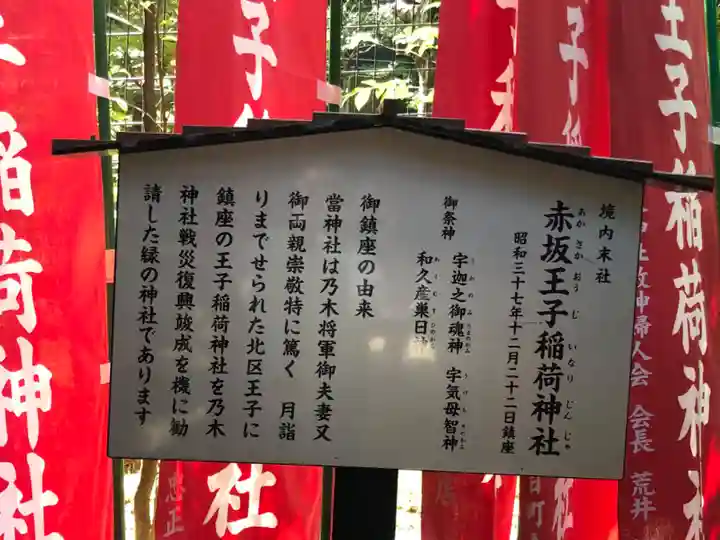 境内末社
赤坂王子稲荷神社
あかさかおうじいなりじんじゃ
昭和三十七年十二月二十二日鎮座
御祭神
宇迦之御魂神 宇気母智神
和久産巣日神
御鎮座の由来
當神社は乃木将軍御夫妻又
御両親崇敬特に篤く 月詣
りまでせられた北区王子に
鎮座の王子稲荷神社を乃木
神社戦災復興竣成を機に勧
請した縁の神社であります
王子稲荷神社
婦人会 会長 荒井
子稲
社
王子稲
忠正
稲荷神社